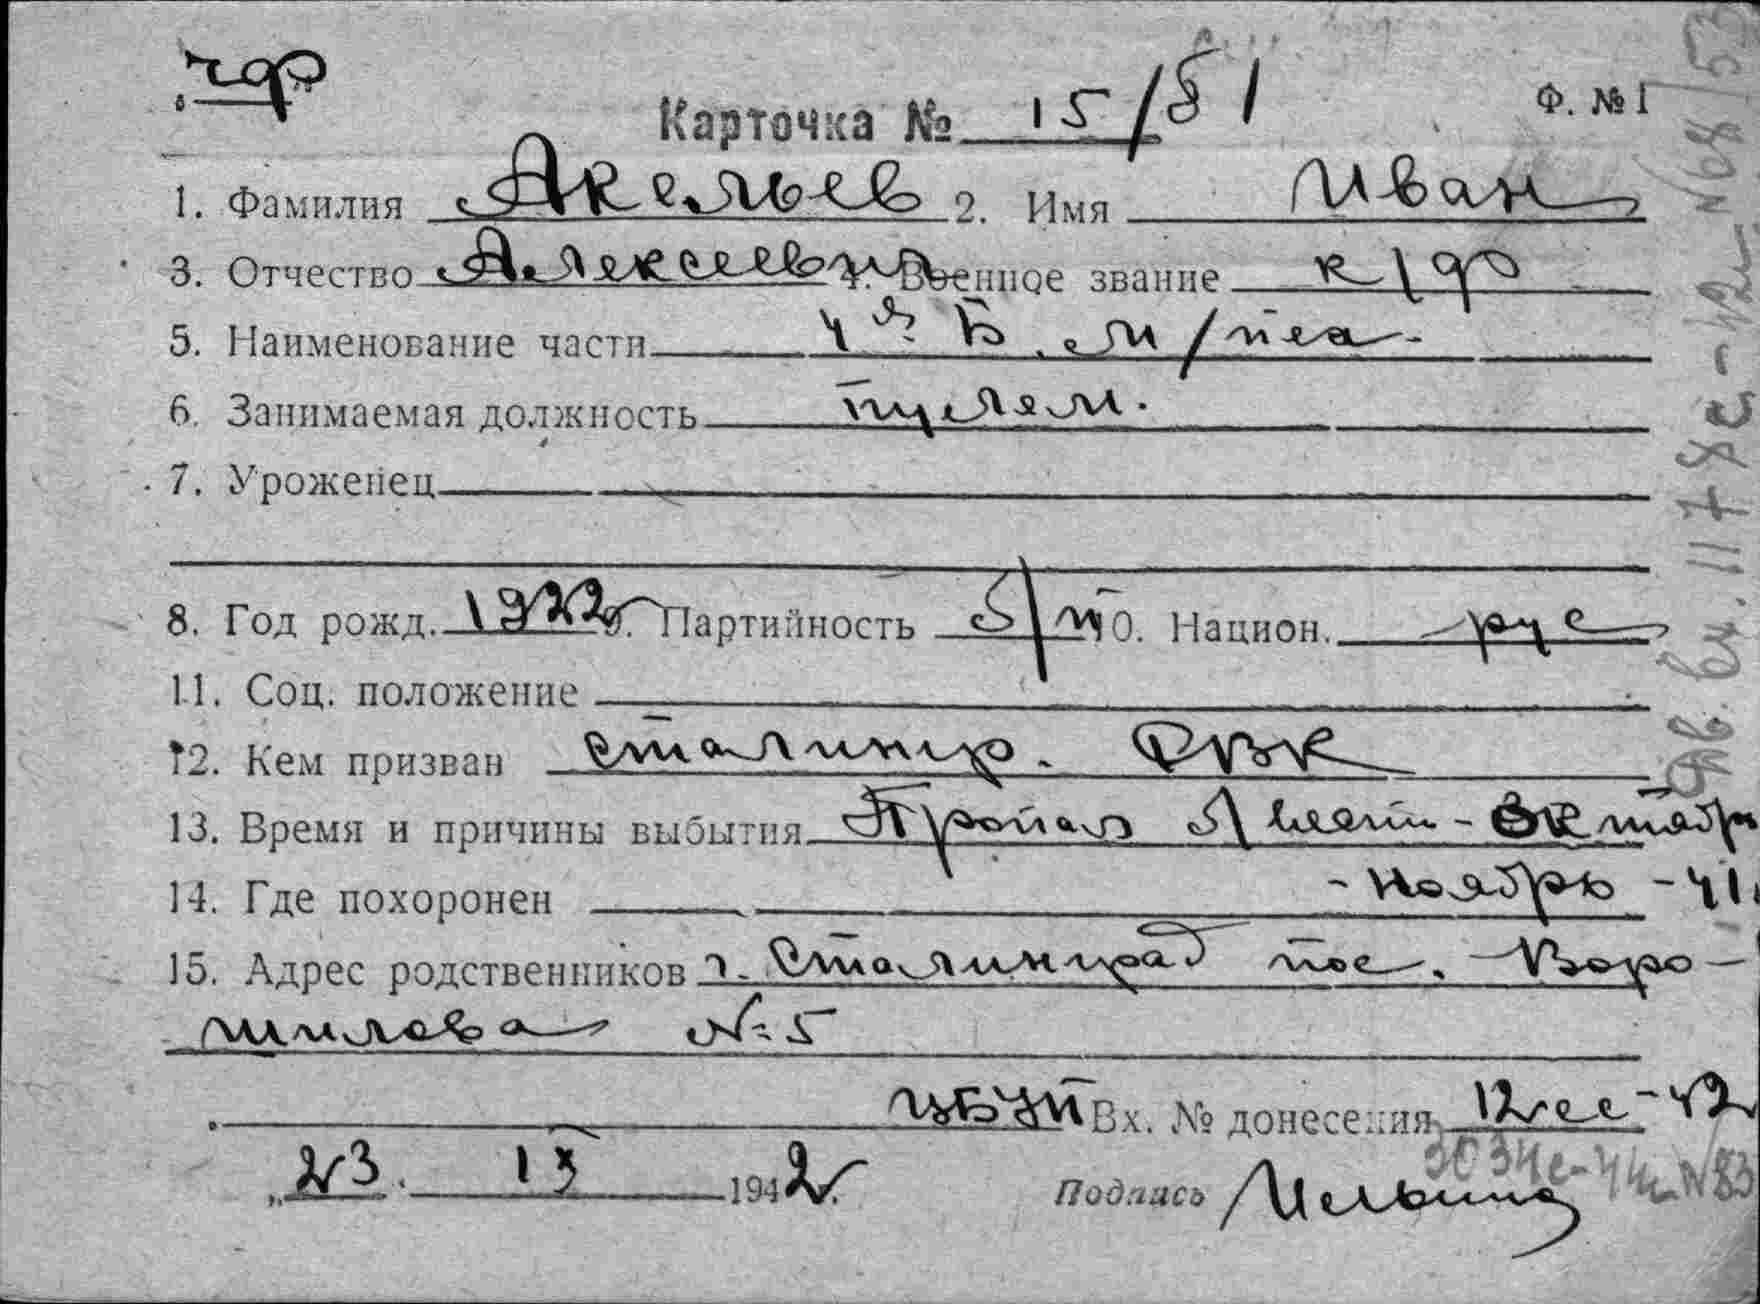 Карточка № 15/81 Ф. № 1
1. Фамилия Акельев 2. Имя Иван
3. Отчество Алексеевич 4. Военное звание к/ф
5. Наименование части 4я Б. М/пех.
6. Занимаемая должность пулем.
7. Уроженец
8. Год рожд. 1922 9. Партийность б/п 10. Национ. рус
11. Соц. положение
12. Кем призван Сталингр. РВК
13. Время и причины выбытия Пропал Октябрь
14. Где похоронен - Ноябрь - 41
15. Адрес родственников г. Сталинград пос. Воро-
шилова № 5
Вх. № донесения 12сс - 42
„23. IX 1942 г.
Подпись